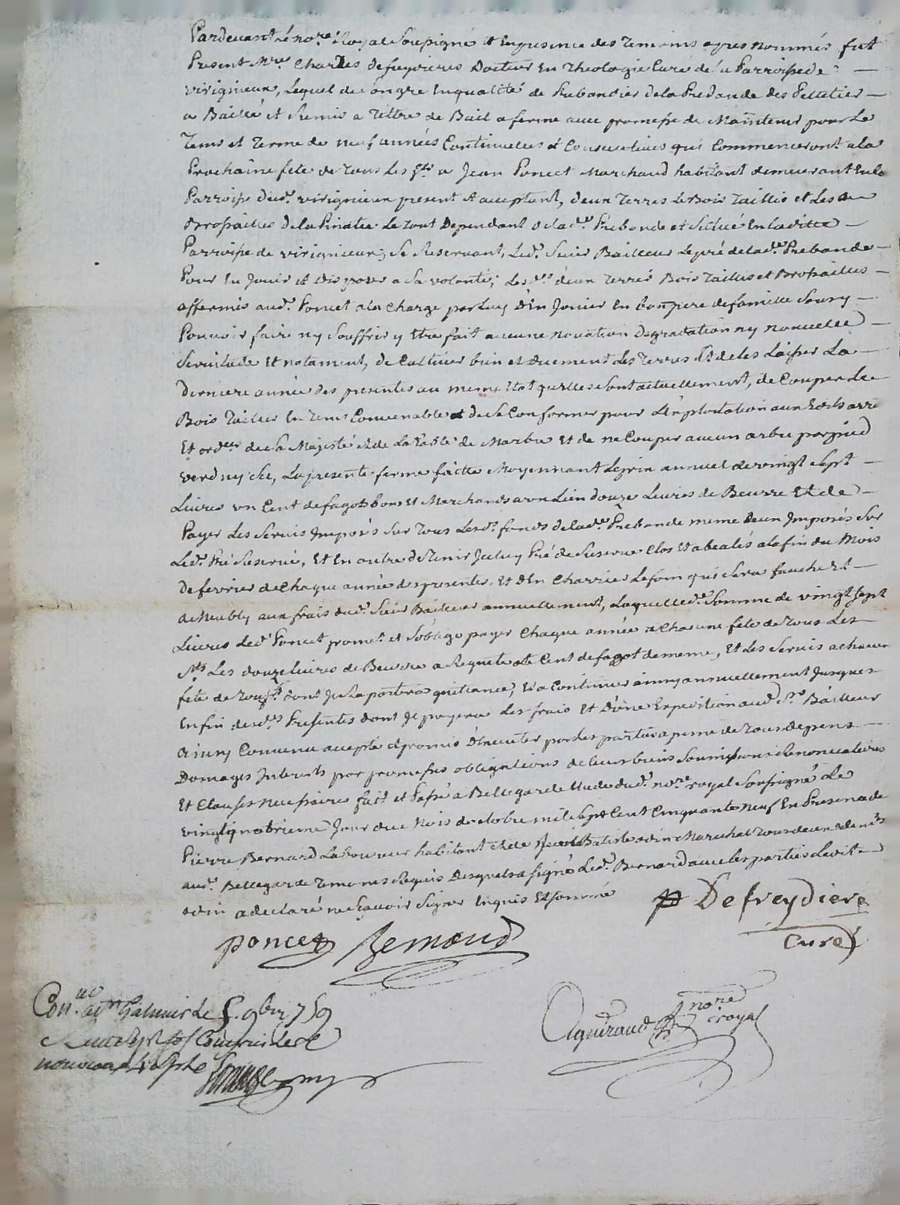 Pardevant le no.re Royal Soussigné et En presence des Temoins apres nommés fut
Present M.re Charles Defreydieres Docteur En Theologie Curé de la Parroisse de
virigneux, Lequel de son gre En qualité de Prebandier de la Prebande des
a Baillé et Remis a Tiltre de Bail a ferme avec promesse de Maintenir pour Le
Tems et Terme de neuf années Continuelles et Consecutives qui Commenceront a la
Prochaine fete de Tous Les S.ts a Jean Poncet Marchand habitant demeurant En la
Parroisse dud. virigneux present et acceptant, deux Terres Le Bois Taillis et Les
Brossailles de la Le Tout Dependant de lad. Prebande et Situé En laditte
Parroisse de virigneux, Se Reservant Led. Sieur Bailleur Le pré de lad. Prebande
Pour En Jouir et disposer a Sa volonté, Les d. deux Terres Bois Taillis et Brossailles
affermés aud. Poncet a la Charge par Luy d'En Jouir En bon pere de famille Sans y
Pouvoir faire ny Souffrir y Etre fait aucune novation Degradation ny nouvelle
Servitude Et notament, de Cultiver bien et Duement Les Terres Et de les Laisser La
Derniere année des presentes au meme Etat quelles sont actuellement, de Couper Le
Bois Taillis En Tems Convenable et de se Conformer pour L'Exploitation aux Edits
Et ord.ces de Sa Majesté et de La Table de Marbre Et de ne Couper aucun arbre par pied
verd ny sec, La presente ferme faitte Moyennant Le prix annuel de vingt Sept
Livres un Cent de fagots bons et Marchands a un Lien douze Livres de Beurre Et de
Payer Les Servis Imposés Sur Tous Les d. fonds de lad. Prebande meme Ceux Imposés Sur
Led. Pré Reservé, Et En outre de Tenir Led. Pré de Reserve Clos Et a la fin du Mois
De fevrier de Chaque année des presentes, Et d'En Charrier Le foin qui Sera fauché Et
aux frais dud. Sieur Bailleur annuellement, Laquelle d. Somme de vingt Sept
Livres Led. Poncet promet et S'oblige payer Chaque année a Chacune fete de Tous Les
S.ts Les douze Livres de Beurre a Requete Le Cent de fagot de meme, Et Les Servis a chacune
fete de dont Il Raportera quittance, Et a Continuer ainsy annuellement Jusques
En fin des d. Presentes dont Il payera Les frais Et D'une Expedition aud. S.r Bailleur
ainsy Convenu accepté et promis D'Executer par les parties a peine de Tous depens
Domages Interets par promesses obligations de leurs biens Soumissions Renonciations
Et Clauses necessaires fait et Passé a Bellegarde Etude dud. no.re royal Soussigné Le
vingt quatrieme Jour du Mois d'octobre mil Sept Cent Cinquante neuf En Presence de
Pierre Bernard Laboureur habitant Et de Batiste odin Marechal Tous deux
aud. Bellegarde Temoins Requis Desquels a Signé Led. Bernard avec les parties Le dit
odin a declaré ne Scavoir Signer Enquis Et Sommé
Defreydiere
Curé
Poncet Bernard
Con.lé a S.t Galmier Le 5 9bre 1759
no.re
royal